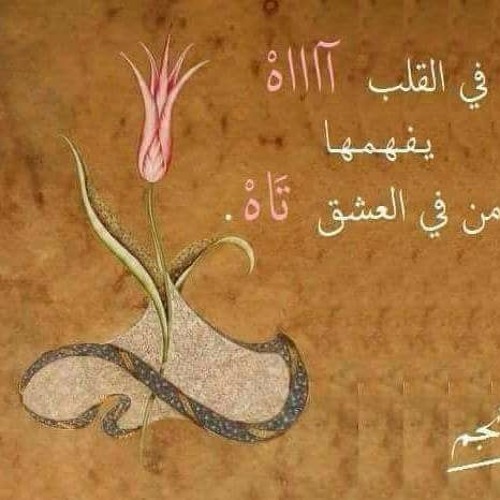 في القلب آاااهْ
يفهمها
من في العشق تَاهْ .